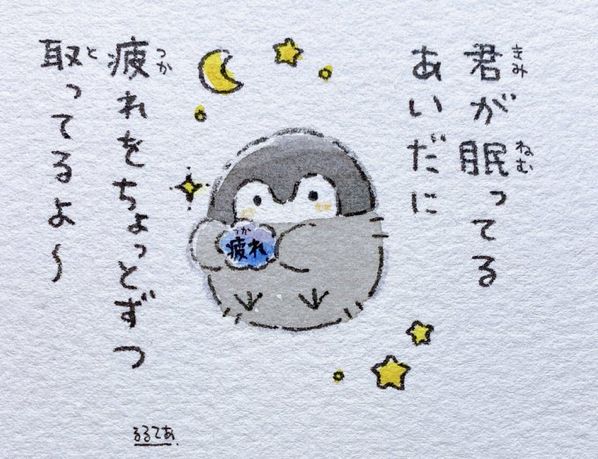 君が眠ってる
あいだに
疲れをちょっとずつ
取ってるよ〜
疲れ
るるてあ